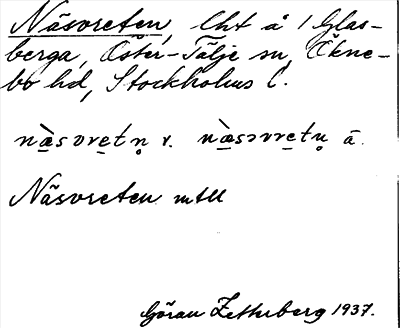 Näsvreten, lht å 1 Glas-
berga, Öster-Tälje sn, Ökne-
bo hd, Stockholms l.
næ̀sɔvretn̥ r. næ̀sɔvretn̥ ä.
Näsvreten mtll
Göran Zetterberg 1937.